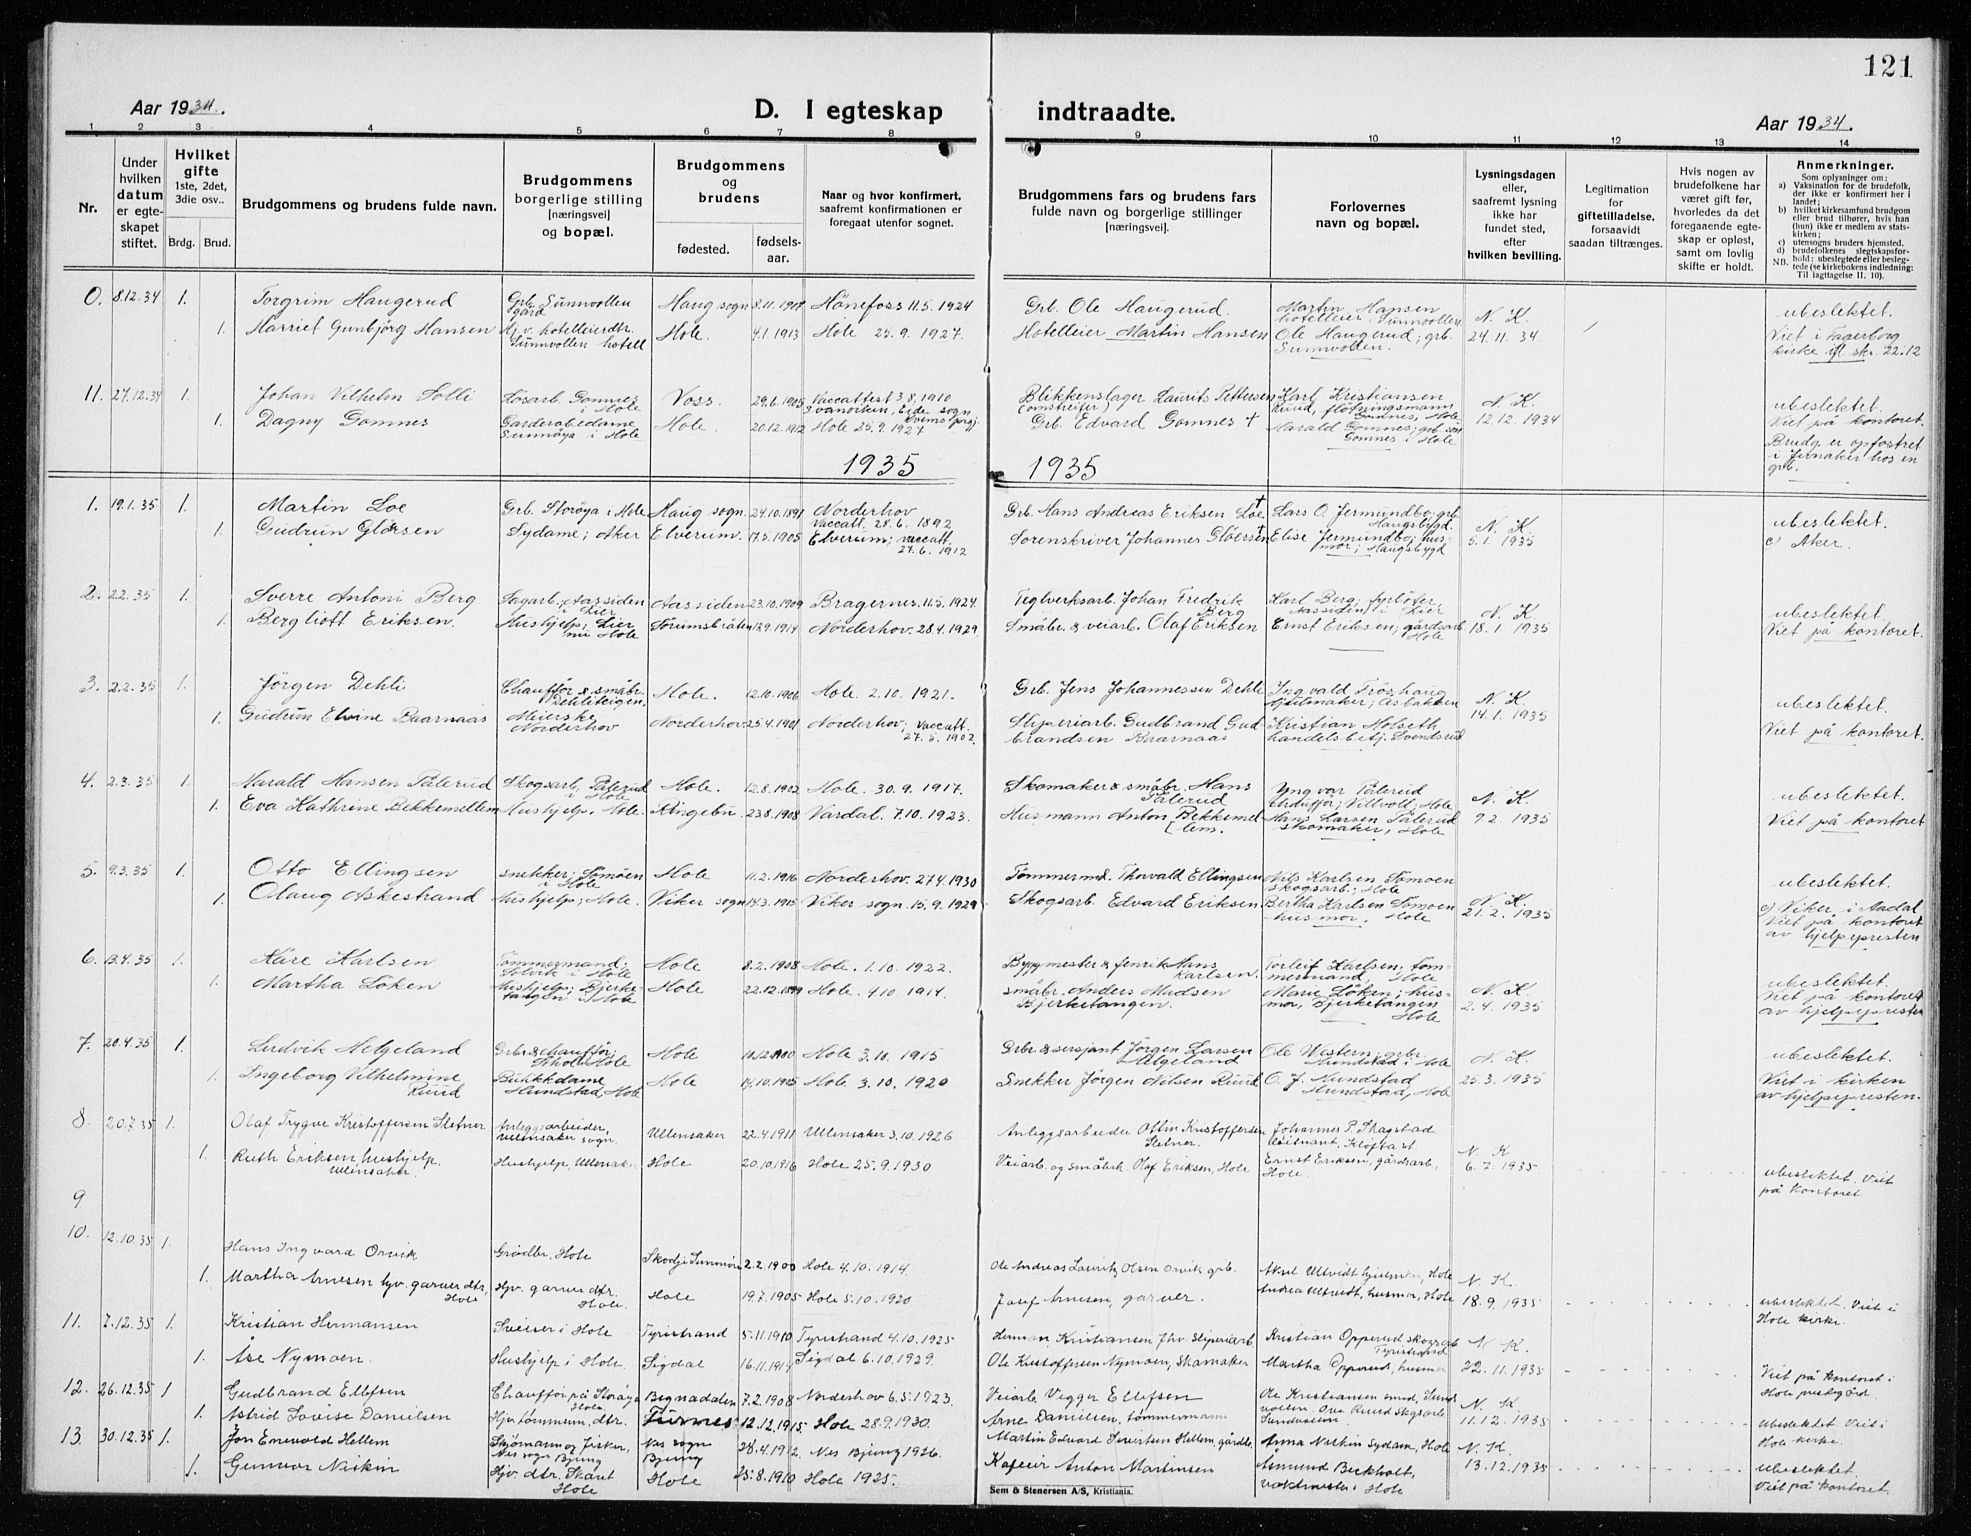 121
Aar 1934.
D. I egteskap
indtraadte.
Aar 1934.
1 2 3 4 5 6 7 8 9 10 11 12 13 14
Nr.
Under hvilken datum er egteskapet stiftet.
Hvilket gifte 1ste, 2det, 3die osv..
Brdg. Brud.
Brudgommens og brudens fulde navn.
Brudgommens borgerlige stilling [næringsvei] og bopæl.
Brudgommens og brudens
fødested. fødsels-aar.
Naar og hvor konfirmert, saafremt konfirmationen er foregaat utenfor sognet.
Brudgommens fars og brudens fars fulde navn og borgerlige stillinger [næringsvei].
Forlovernes navn og bopæl.
Lysningsdagen eller, saafremt lysning ikke har fundet sted, efter hvilken bevilling.
Legitimation for giftetilladelse, forsaavidt saadan tiltrænges.
Hvis nogen av brudefolkene har været gift før, hvorledes da det foregaaende egteskap er opløst, samt om lovlig skifte er holdt.
Anmerkninger.
Som oplysninger om:
a) Vaksination for de brudefolk, der ikke er konfirmert her i landet;
b) hvilket kirkesamfund brudgom eller brud tilhører, hvis han (hun) ikke er medlem av statskirken;
c) utensogns bruders hjemsted.
d) brudefolkenes slegtskapsforhold: ubeslegtede eller beslegtede (se kirkebokens indledning:
NB. Til iagttagelse II. 10).
0. 8.12.34 1. Torgrim Haugerud Grb. Sunnvollen gård Haug sogn 8.11.1907 Hønefoss 11.5.1924 Grb. Ole Haugerud Martin Hansen hotelleier, Sunnvollen N. K. ubeslektet.
1. Harriet Gunbjörg Hansen Hj. v. hotelleierdtr. Sunnvollen hotell Hole. 4.1.1913 Hole 25.9.1927. Hotelleier Martin Hansen Ole Haugerud; grb. Sunnvolden. 24.11.34. Viet i Fagerborg kirke ifl. skr. 22.12
11. 27.12.34 1. Johan Vilhelm Solli Løsarb. Gomnes i Hole Voss. 29.6.1905 Vaccattest 3.8.1910 Eide sogn Blikkenslager Laurits Pettersen (omstreifer) Karl Kristiansen Ruud, fløtningsmann Gomnes, Hole N. K. ubeslektet.
1. Dagny Gomnes Garderobedame Sunnøya i Hole Hole. 20.12.1912 Hole 25.9.1927 Grb. Edvard Gomnes † Harald Gomnes; grb.sön Gomnes i Hole 12.12.1934 Viet på kontoret.
Brudg. er opfostret i Jernaker hos en grb.
1935
1935
1. 19.1.35 1. Martin Loe Grb. Storøya i Hole Haug sogn. 24.10.1891 Norderhov Vaccatt. 28.6.1892 Grb. Hans Andreas Eriksen Loe † Lars O. Jermundbo, grb. Haugsbygd. N. K. ubeslektet.
1. Gudrun Gløersen Sydame; Aker Elverum. 17.5.1905 Elverum; vaccatt. 27.6.1912 Sorenskriver Johannes Gløersen † Elise Jermundbo; husmor; Haugsbygd 5.1.1935 c) Aker.
2. 2.2.35 1. Sverre Antoni Berg Sagarb. Aassiden i Lier Aassiden 23.10.1909 Bragernes. 11.5.1924. Teglverksarb. Johan Fredrik Berg Karl Berg; fyrbøter Aassiden i Lier N. K. ubeslektet.
1. Bergliott Eriksen. Hushjelp; Lier nu Hole Sørumsbråten 12.9.1914 Norderhov. 28.4.1929. Småbr. & veiarb. Olaf Eriksen Ernst Eriksen; gårdsarb. Hole 18.1.1935 Viet på kontoret.
3. 2.2.35 1. Jörgen Dehli Chaufför & småbr. Dehliteigen, Hole. 12.10.1906 Hole. 2.10.1921. Grb. Jens Johannessen Dehli Ingvald Fröshaug hjulmaker; Asbakken N. K. ubeslektet.
1. Gudrun Elvine Baarnaas Meierske Norderhov Norderhov 25.4.1901 Norderhov; vaccatt. 27.5.1902. Sliperiarb. Gudbrand Gudbrandsen Baarnaas Kristian Holseth handelsbetj. Svendsrud 14.1.1935 Viet på kontoret.
4. 2.3.35 1. Harald Hansen Pålerud Skogsarb. Pålerud i Hole Hole. 12.8.1902 Hole. 30.9.1917. Skomaker & småbr. Hans Pålerud Yngvar Pålerud chauffør; Viltvoll; Hole N. K. ubeslektet.
1. Eva Kathrine Bekkemellem Hushjelp. Hole. Ringebu. 23.8.1908 Vardal. 7.10.1923. Husmann Anton Bekkemellem. Hans Larsen Pålerud skomaker, Hole 9.2.1935 Viet på kontoret
5. 9.3.35 1. Otto Ellingsen snekker; Sømoen i Hole Hole 11.2.1916 Norderhov. 27.4.1930 Tømmermd. Thorvald Ellingsen Nils Karlsen Sømoen skogsarb.; Hole ubeslektet.
1. Olaug Askestrand Hushjelp; Hole. Viker sogn 14.3.1915 Viker sogn. 15.9.1929 Skogsarb. Edvard Eriksen Bertha Karlsen Sømoen husmor. Hole N. K. 21.2.1935 c) Viker i Aadal
Viet på kontoret av hjelpepresten
6. 13.4.35 1. Kåre Karlsen Tømmermand; Solvik i Hole Hole 8.2.1908 Hole. 1.10.1922. Byggmester & fenrik Hans Karlsen. Torleif Karlsen; tømmermand Hole ubeslektet.
1. Martha Löken Hushjelp; Bjerketangen i Hole Hole 22.12.1899 Hole. 4.10.1914. småbr. Anders Madsen Bjerketangen. Marie Löken; husmor, Bjerketangen Hole N. K. 2.4.1935 Viet på kontoret av hjelpepresten
7. 20.4.35 1. Ludvik Helgeland Grbr. & chauffør; Hole Hole 10.12.1900 Hole 3.10.1915 Grbr. & sersjant Jörgen Larsen Helgeland Ole Wistern, grbr. Hundstad i Hole N. K. ubeslektet.
1. Ingeborg Vilhelmine Ruud Butikkdame Hundstad, Hole Hole 14.10.1905 Hole 3.10.1920 Snekker Jörgen Nilsen Ruud O. J. Hundstad Hundstad, Hole 25.3.1935 Viet i kirken av hjelpepresten.
8. 20.7.35 1. Olaf Trygve Kristoffersen Sletner Anleggsarbeider, Ullensaker sogn. Ullensaker 22.4.1911 Ullensaker 3.10.1926 Anleggsarbeider Ottin Kristoffersen Sletner Johannes P. Skagstad løitnant, Kløfta st. N. K
1. Ruth Eriksen, hushjelp, Ullensaker. Hushjelp, Ullensaker Hole 20.10.1916 Hole 25.9.1930 Veiarb. og småbr. Olaf Eriksen, Hole Ernst Eriksen, gårdsarb., Hole. 6.7.1935 ubeslektet. Viet på kontoret.
9
10. 12.10.35 1. Hans Ingvard Orvik Grødbr. Hole Skodje Sunnmöre 2.2.1900 Hole 4.10.1914. Ole Andreas Lauritz Olsen Orvik grb. Aksel Ultvedt hjulmaker, Hole N. K.
1. Martha Arnesen hjv. garver dtr, Hole Hjv. garver dtr. Hole. Hole 19.7.1905 Hole 5.10.1920 Josef Arnesen, garver. Andrea Ultvedt, husmor, Hole 18.9.1935 ubeslektet. Viet i Hole kirke.
11. 7.12.35 1. Kristian Hermansen Sveiser i Hole Tyristrand 5.11.1910 Tyristrand 4.10.1925. Herman Kristiansen fhv. sliperiarb. Kristian Opperud skogsarb Tyristrand N. K.
1. Åse Nymoen. Hushjelp i Hole. Sigdal 16.11.1914 Sigdal 6.10.1929. Ole Kristoffersen Nymoen, Skomaker Martha Opperud, husmor 22.11.1935 Viet på kontoret i Hole prestegård.
12. 26.12.35 1 Gudbrand Ellefsen Chauffør på Storøya Hole Begnadalen 7.2.1908 Norderhov 6.5.1923. Veiarb. Vegger Ellefsen Ole Kristiansen smed, Sundvollen. Ove Ruud skogsarb. Sundvollen N. K.
1. Astrid Lovise Danielsen Hjv. tømmerm. dtr. Furnes 12.12.1915 Hole 28.9.1930. Arne Danielsen, tømmermann 11.12.1935 ubeslektet. Viet i Hole kirke.
13. 30.12.35 1. Jon Enevold Hellem Skjømann og fisker, Nes sogn Bjung Nes sogn Bjung 28.4.1912 Nes Bjung 1926. Martin Edvard Sivertsen Hellem, gårdbr. Anna Niskin Sydam, Hole N. K.
1. Gunvor Niskin Hjv. dtr. Skaret Hole Hole 25.8.1910 Hole 1925. Kafeeier Anton Martinsen Åsmund Berkholt, vaktmester i Hole 13.12.1935 ubeslektet. Viet på kontoret.
Sem & Stenersen A/S, Kristiania.